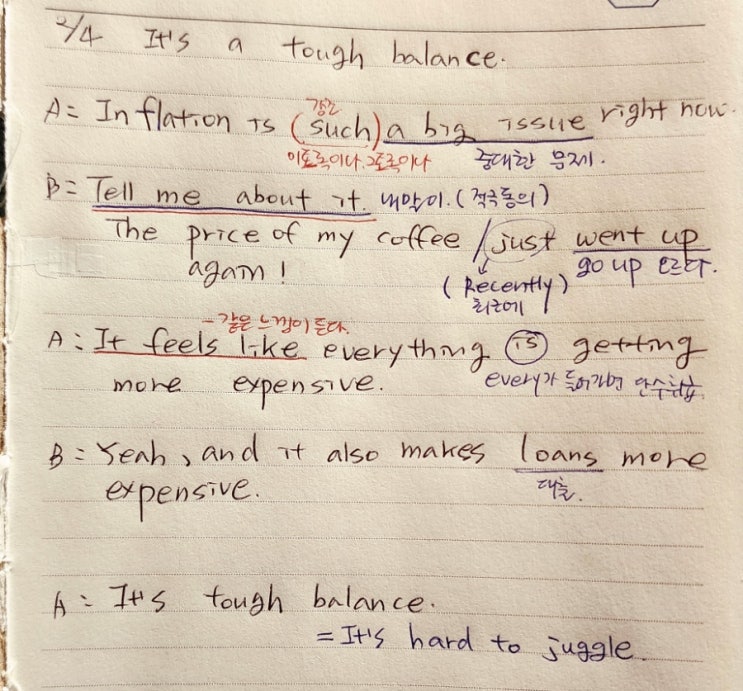 2/4 It's a tough balance.
강조
A= Inflation is (such) a big issue right now.
이토록이나, 그토록이나 중대한 문제.
B= Tell me about it. 내말이. (적극동의)
The price of my coffee / just went up
again! (Recently) go up 오르다.
최근에
~같은 느낌이 든다.
A: It feels like everything is getting
more expensive. every가 들어가면 단수취급.
B= Yeah, and it also makes loans more
expensive. 대출.
A= It's tough balance.
= It's hard to juggle.